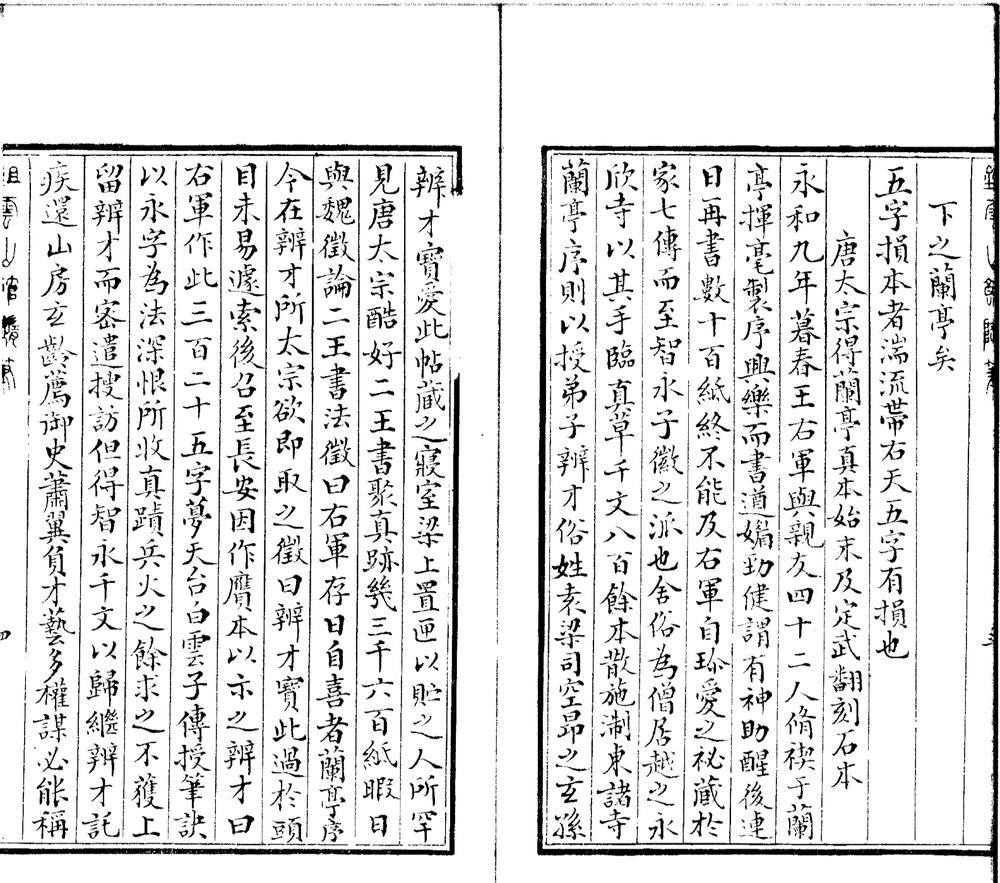 下之蘭亭矣
五字損本者湍流帶右天五字有損也
唐太宗得蘭亭真本始末及定武翻刻石本
永和九年暮春王右軍與親友四十二人脩禊于蘭
亭揮毫製序興樂而書遒媚勁健謂有神助醒後連
日再書數十百紙終不能及右軍自珍愛之祕藏於
家七傳而至智永子徽之派也舍俗為僧居越之永
欣寺以其手臨真草千文八百餘本散施淛東諸寺
蘭亭序則以授弟子辨才俗姓袁梁司空昂之玄孫
辨才寶愛此帖藏之寢室梁上置匣以貯之人所罕
見唐太宗酷好二王書聚真跡幾三千六百紙暇日
與魏徵論二王書法徵曰右軍存日自喜者蘭亭序
今在辨才所太宗欲即取之徵曰辨才寶此過於頭
目未易遽索後召至長安因作贗本以示之辨才曰
右軍作此三百二十五字夢天台白雲子傳授筆訣
以永字為法深恨所收真蹟兵火之餘求之不獲上
留辨才而密遣搜訪但得智永千文以歸繼辨才託
疾還山房玄齡薦御史蕭翼負才藝多權謀必能稱